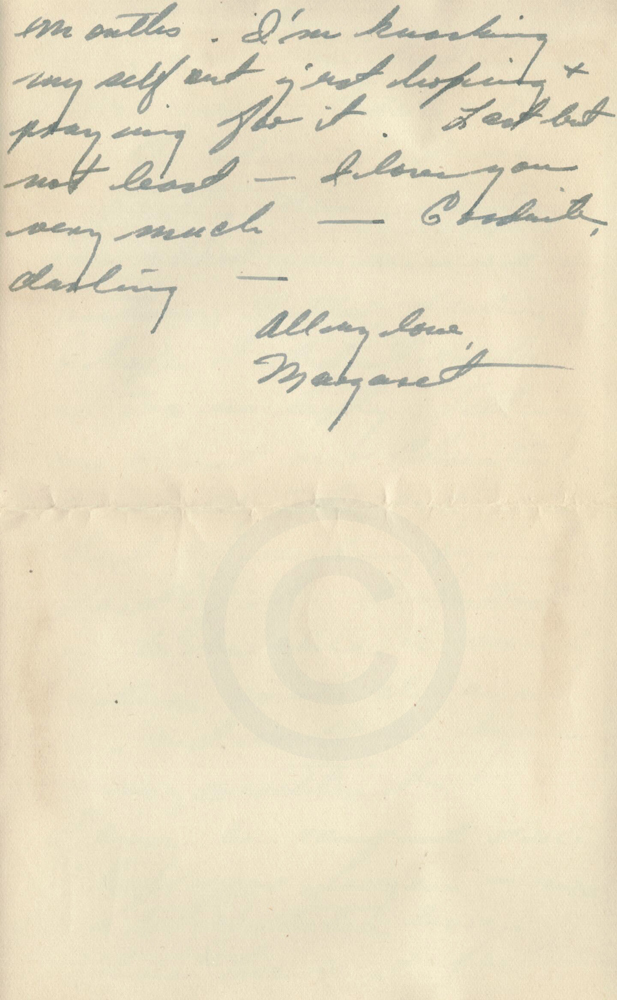 months. I'm knocking
my self out just hoping +
praying for it. Last but
not least — I love you
very much — Goodnite,
darling —
All my love,
Margaret
©